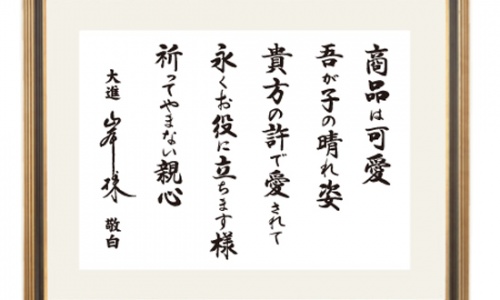 商品は可愛
吾が子の晴れ姿
貴方の許で愛されて
永くお役に立ちます様
祈ってやまない親心
大進 敬白